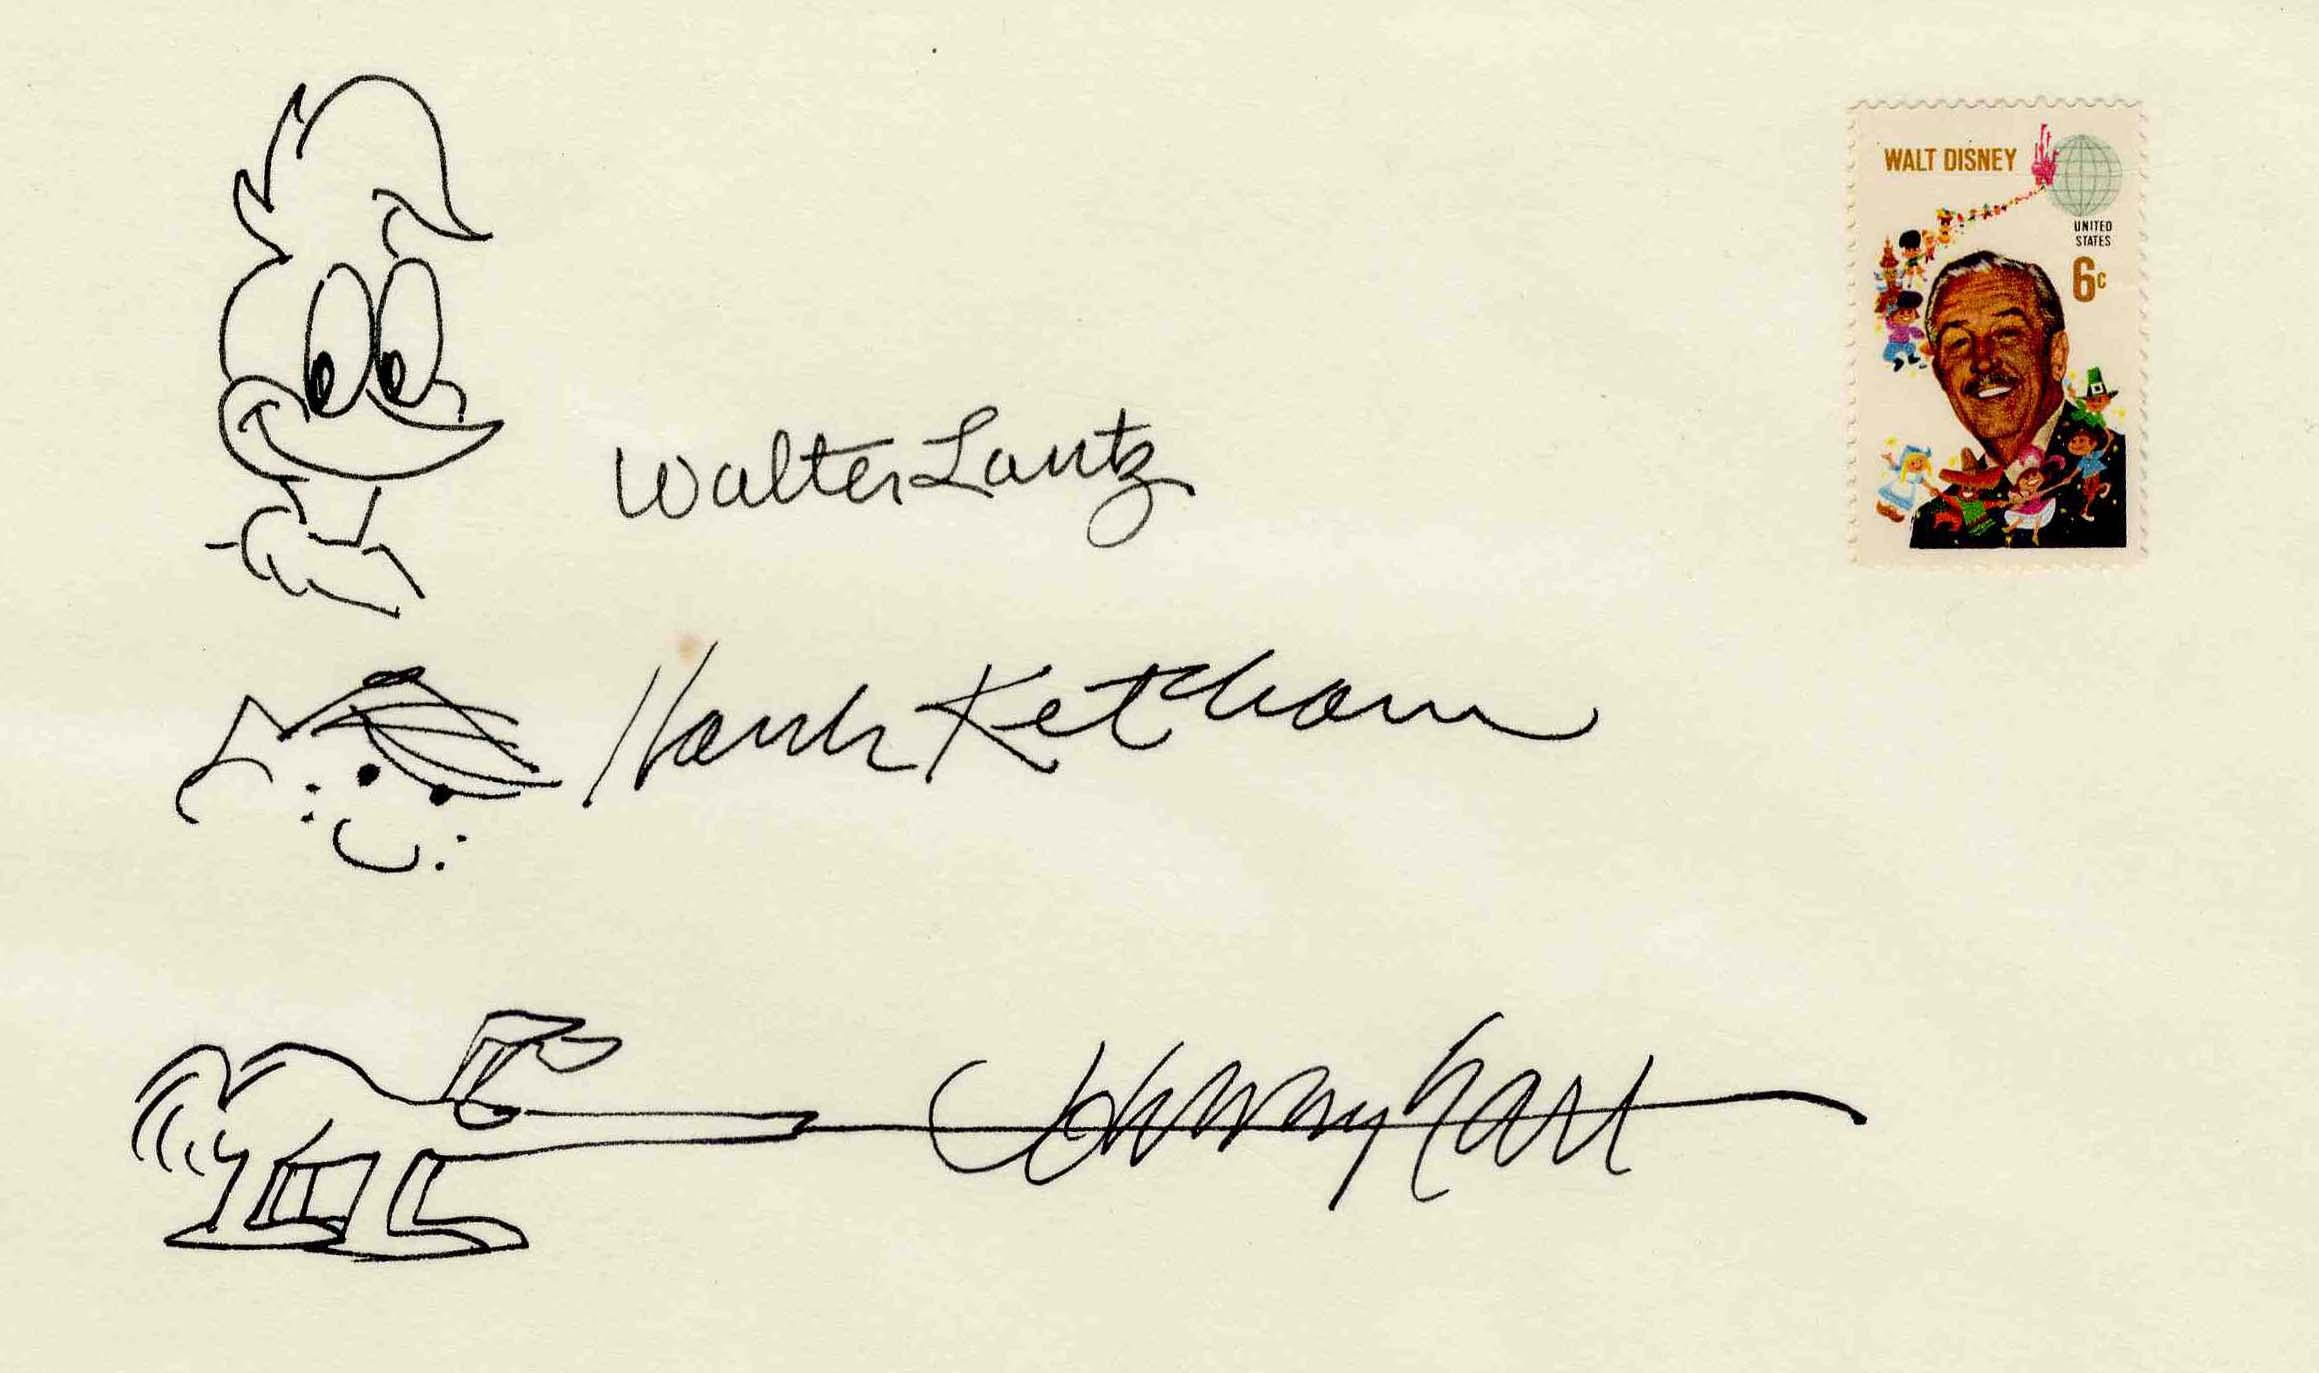 WALT DISNEY
UNITED
STATES
6c
Walter Lantz
Hank Ketcham
Johnny hart